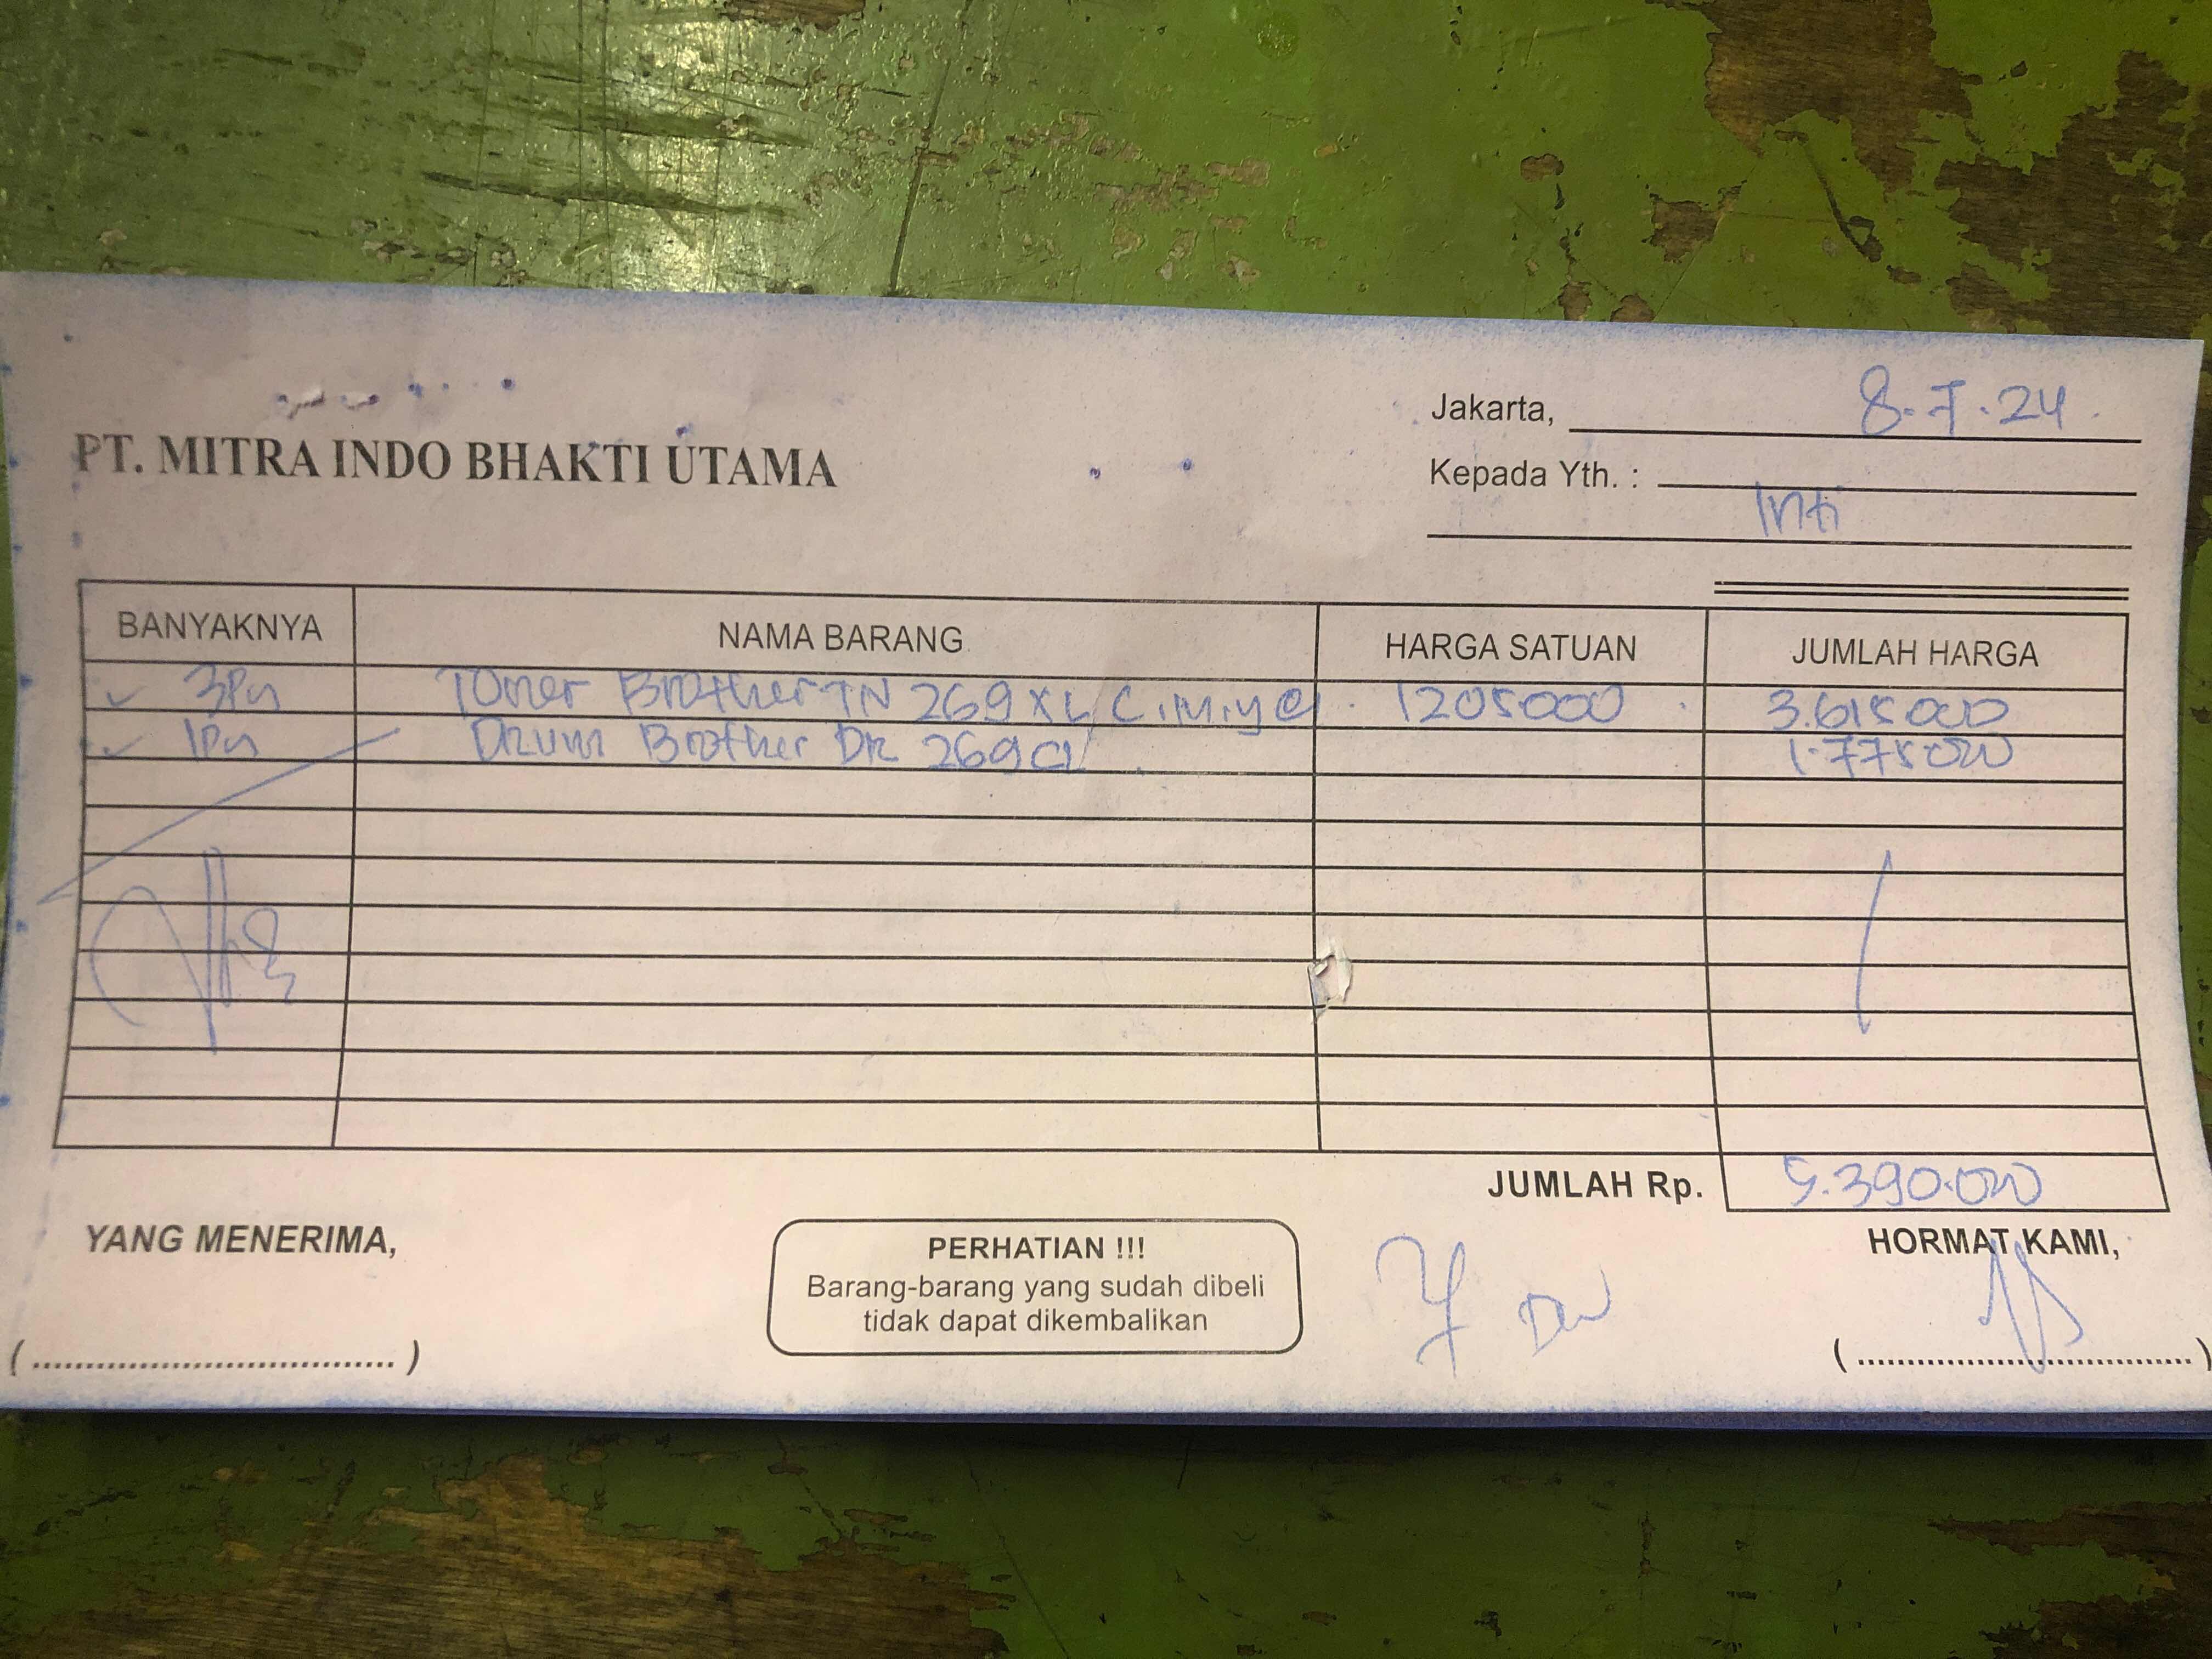 Jakarta, 8.7.24.
PT. MITRA INDO BHAKTI UTAMA
Kepada Yth. :
Inti
BANYAKNYA NAMA BARANG HARGA SATUAN JUMLAH HARGA
3 Pcs Toner Brother TN 269 XL C.M.Y @ 1205000 3.615000
1 Pcs Drum Brother DR 269CL 1.775000
JUMLAH Rp. 5.390.000
YANG MENERIMA,
PERHATIAN !!!
Barang-barang yang sudah dibeli
tidak dapat dikembalikan
HORMAT KAMI,